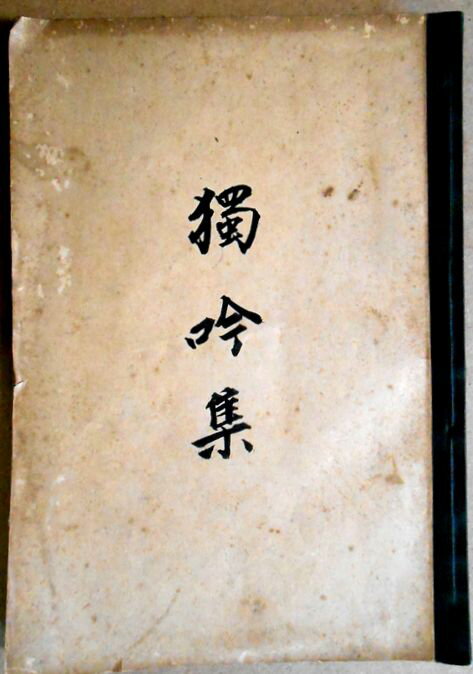 獨吟集